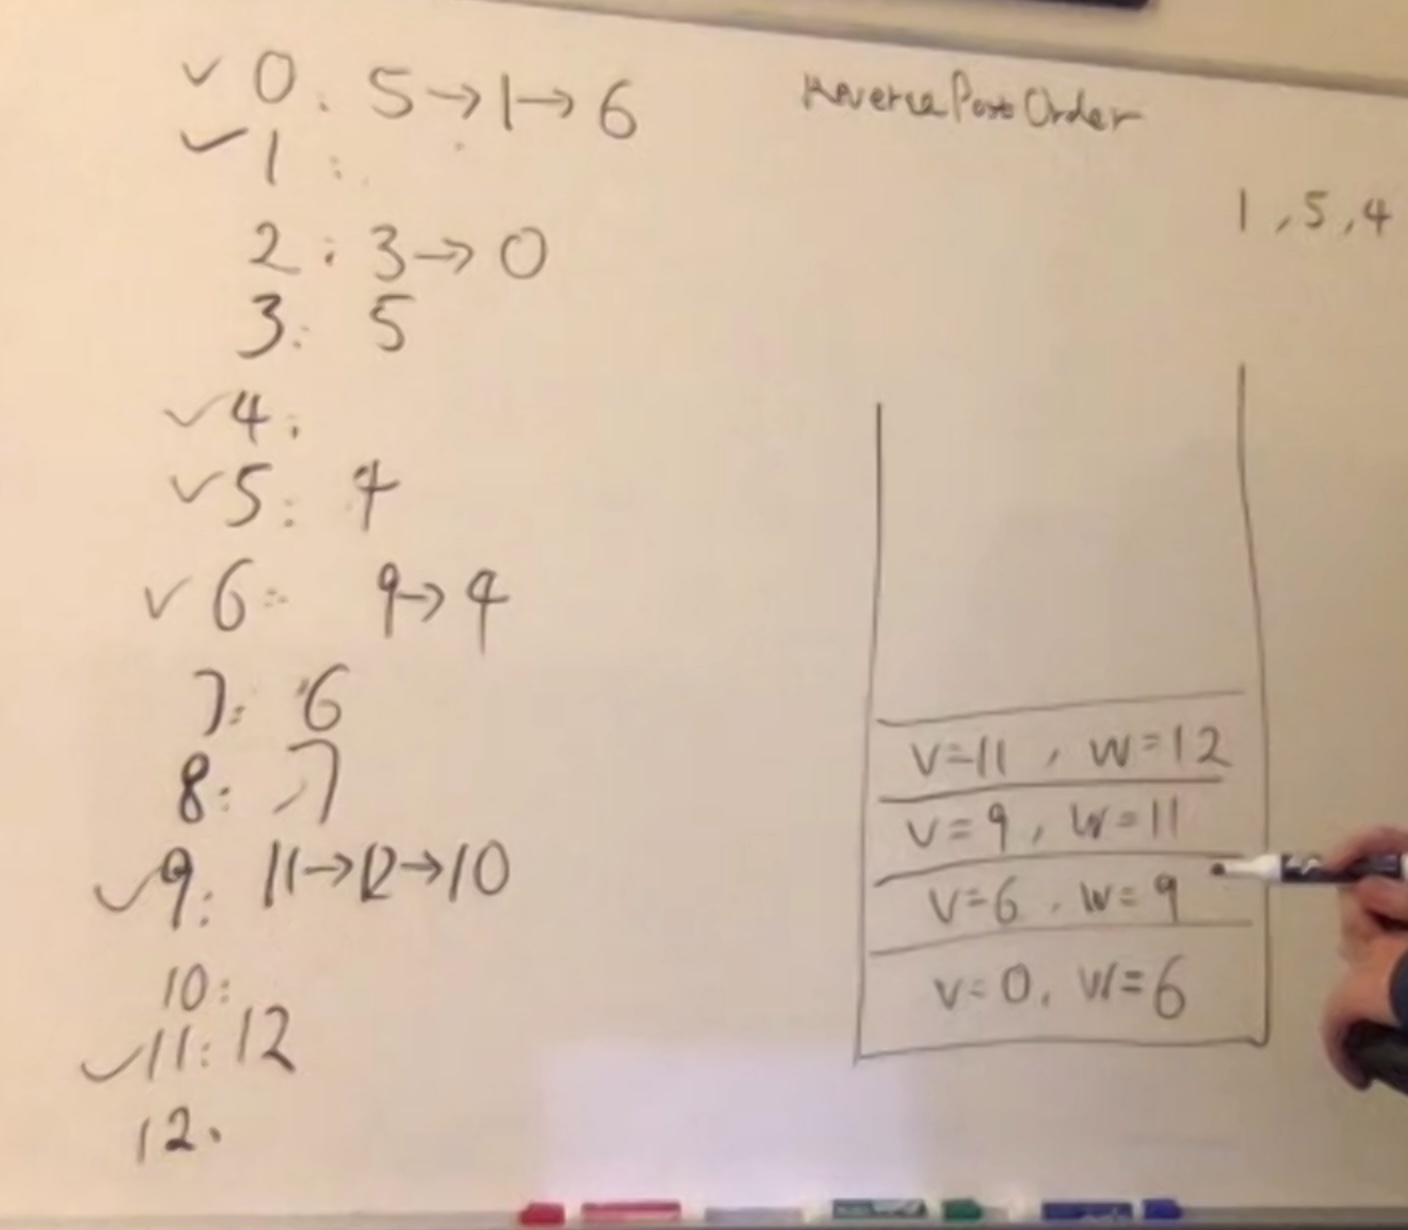 ✓ 0: 5→1→6
✓ 1:
2: 3→0
3: 5
✓ 4:
✓ 5: 4
✓ 6: 9→4
7: 6
8: 7
✓ 9: 11→12→10
10:
✓ 11: 12
12.
ReversePostOrder
1, 5, 4
V=11, W=12
V=9, W=11
V=6, W=9
V=0, W=6